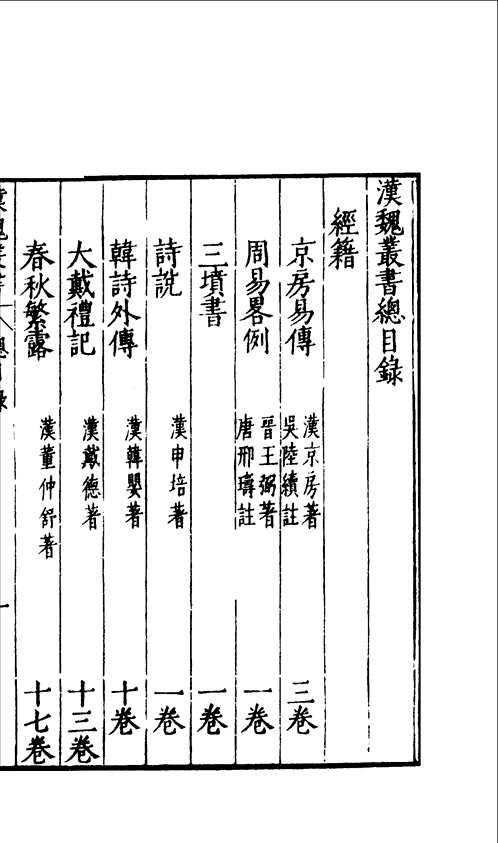 漢魏叢書總目錄
經籍
京房易傳 漢京房著 吳陸績註 三卷
周易畧例 晉王弼著 唐邢璹註 一卷
三墳書 一卷
詩說 漢申培著 一卷
韓詩外傳 漢韓嬰著 十卷
大戴禮記 漢戴德著 十三卷
春秋繁露 漢董仲舒著 十七卷